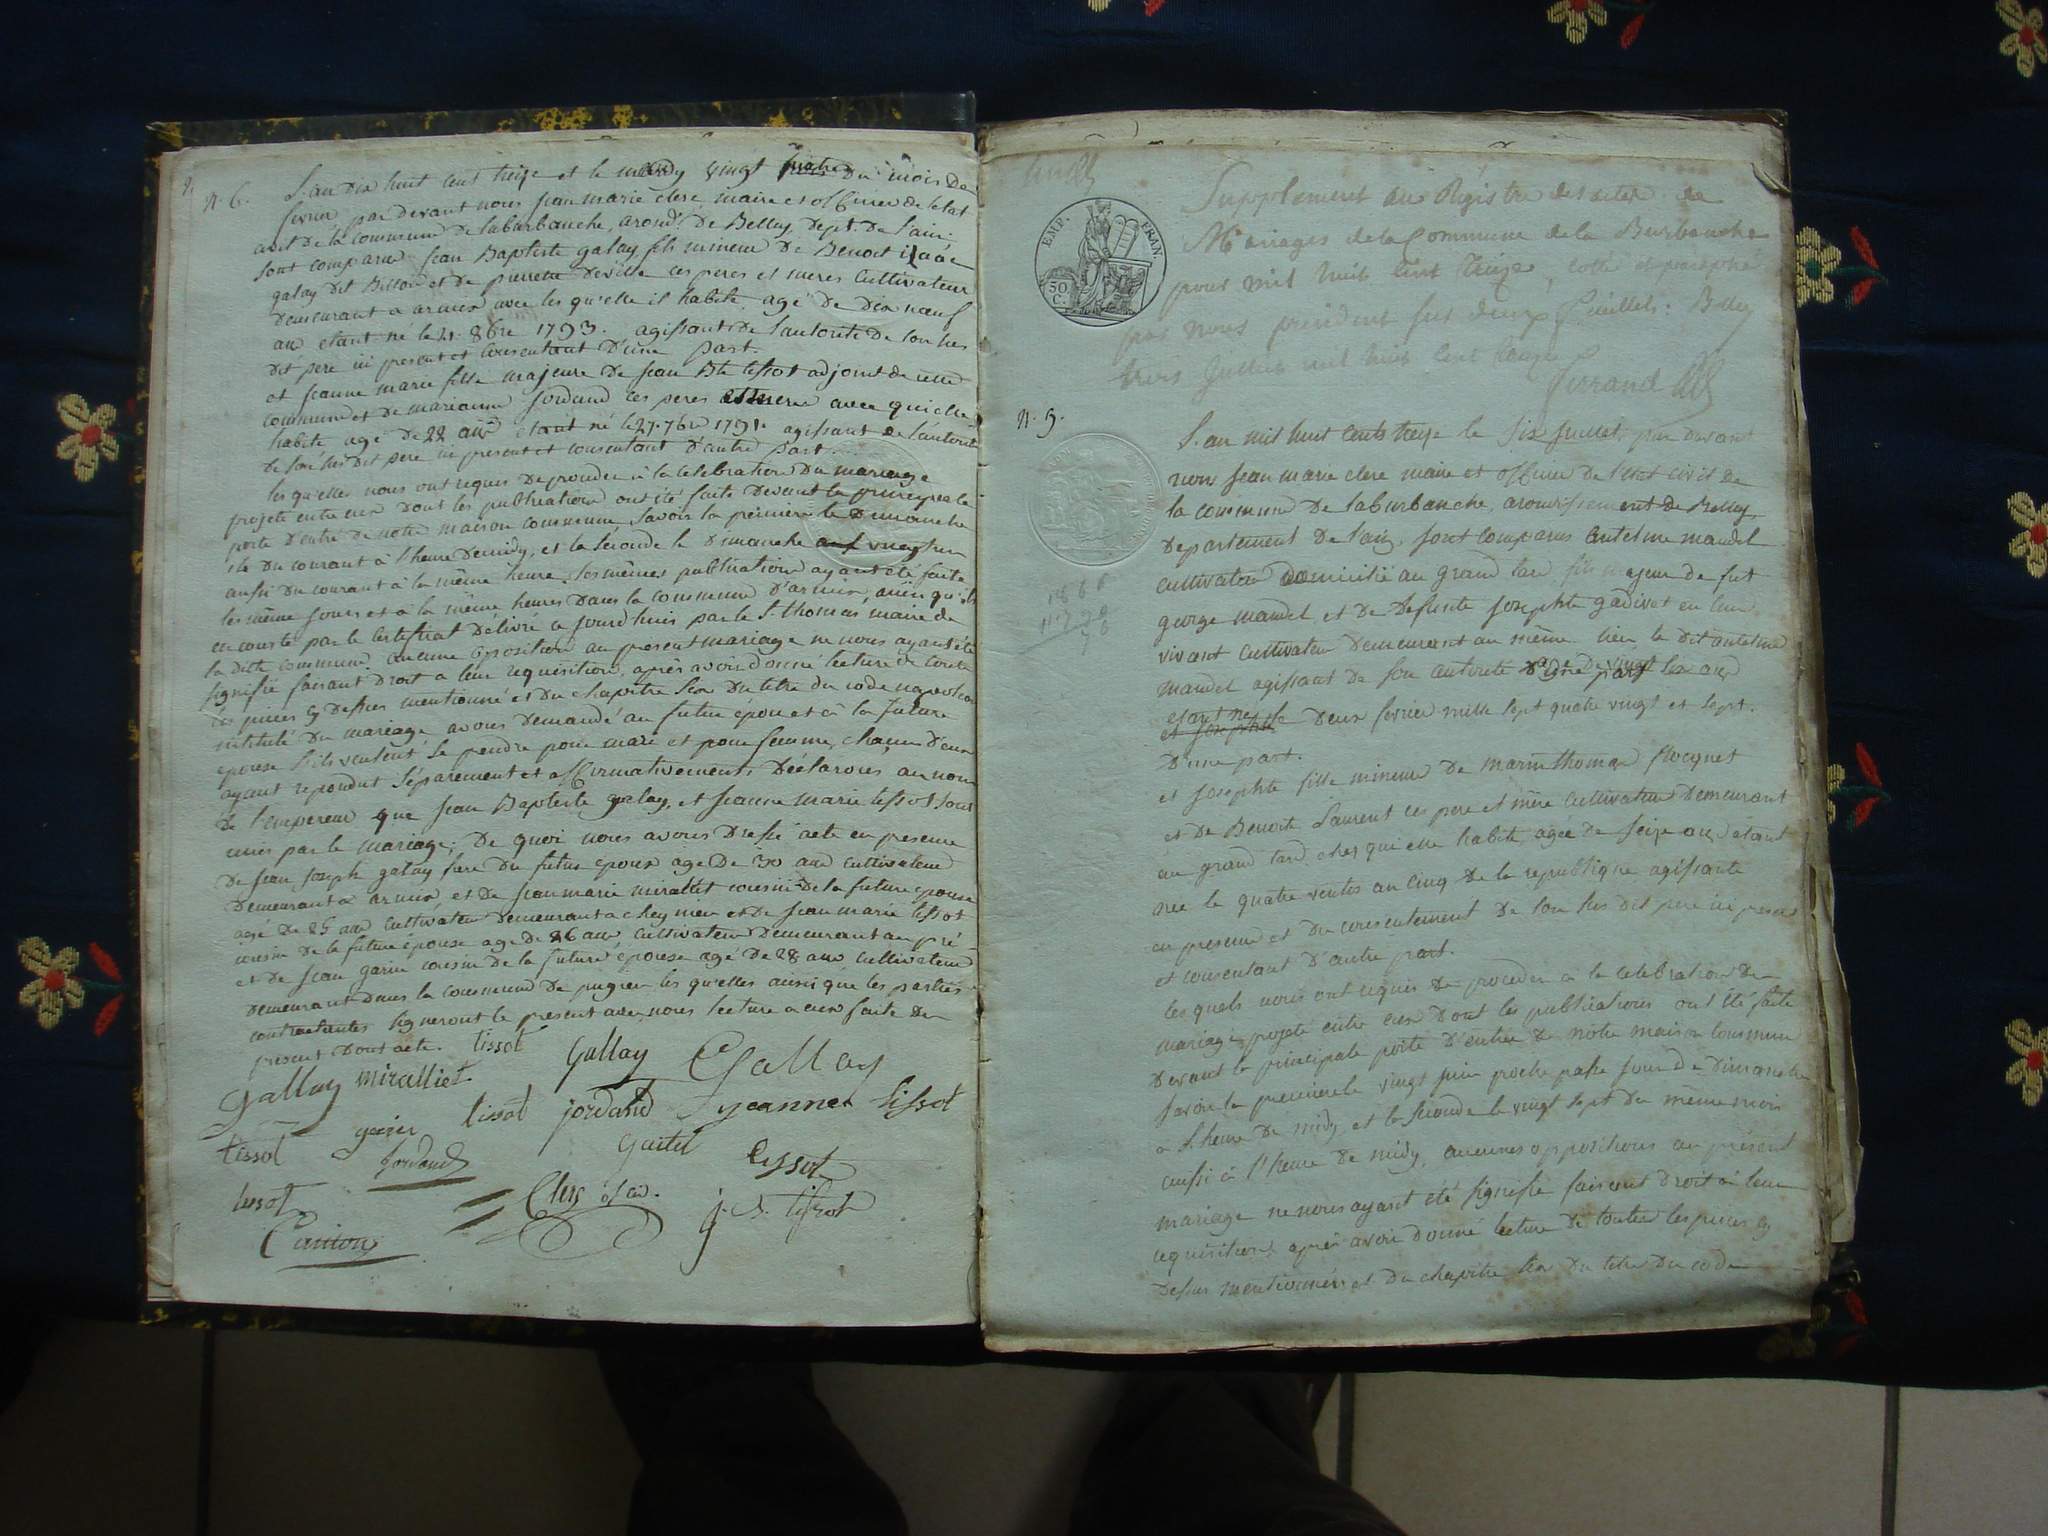 N. 6.
L'an dix huit cent treize et le mardy vingt du mois de
fevrier par devant nous jean marie clerc maire et officier de l'etat
civil de la commune de laburbanche, arond.t de Belley, dept. de l'ain.
sont comparus jean Baptiste galay fils mineur de Benoit
galay dit Billon et de pierrette deville ces peres et meres cultivateur
demeurant a armix avec les qu'elle il habite agé de dix nœuf
ans etant né le 21. 8bre 1793. agissant de l'autorité de son sus
dit pere ici present et consentant d'une part.
et jeanne marie fille majeure de jean Bte tissot adjoint de cette
commune et de marianne jordand ces peres et mere avec qui elle
habite agé de 22 ans etant né le 27. 7bre 1791. agissant de l'autorité
de son sus dit pere ici present et consentant d'autre part.
les qu'elles nous ont requis de proceder à la celebration du mariage
projeté entre eux dont les publications ont été faite devant la principale
porte d'entré de notre maison commune savoir la premiere le dimanche
du courant à l'heure de midy, et la seconde le dimanche vingt un
aussi du courant à la même heure, les mêmes publications ayant été faite
les même jours et à la même heures dans la commune d'armix, ainsi qu'il
en conste par le certificat délivré ce jourd'huis par le Sr. thomas maire de
la ditte commune. aucune oposition au present mariage ne nous ayant été
signifié faisant droit a leur requisition, après avoir donné lecture de toute
les pieces cy dessus mentionné et du chapitre six du titre du code napoleon
intitulé du mariage avons demandé au futur époux et à la future
epouse s'ils veulent se prendre pour mari et pour femme, chacun d'eux
ayant repondut séparement et affirmativements déclarons au nom
de l'empereur que jean Baptiste galay, et jeanne marie tissot sont
unis par le mariage; de quoi nous avons dressé acte en presence
de jean joseph galay frere du futur epoux agé de 30 ans cultivateur
demeurant à armix, et de jean marie miralliet cousin de la future epouse
agé de 25 ans cultivateur demeurant a cheymieu et de jean marie tissot
cousin de la future épouse agé de 26 ans cultivateur demeurant au pré
et de jean garin cousin de la future épouse agé de 28 ans cultivateur
demeurant dans la commune de pugieu les qu'elles ainsi que les parties
contractantes signeront le present avec nous lecture a eux faite du
present dont acte. tissot gallay Gallay
gallay miralliet
tissot jordand jeanne tissot
tissot
jordand tissot
tissot Clerc j. B. tissot
EMP. FRAN.
50 C.
Supplement au Régistre des actes de
Mariages de la Commune de la Burbanche
pour mil huit cent treize cotté et paraphé
par nous président sur deux feuillets: Belley
trois Juillet mil huit cent treize
Ferrand
N. 9.
L'an mil huit cents treize le six juillet, par devant
nous jean marie clerc maire et officier de l'etat civil de
la commune de laburbanche, arondissement de Belley,
departement de l'ain, sont comparus antelme mandel
cultivateur domicilié au grand tard fils majeur de fut
george mandel et de defunte josephte gadivet en leur
vivant cultivateur demeurant au même lieu le dit antelme
mandel agissant de son autorité d'une part de vingt six ans
etant né le deux fevrier mille sept quatre vingt et sept.
et josephte
d'une part.
et josephte fille mineure de marin thomas flocquet
et de Benoite Laurent ces pere et mère cultivateur demeurant
au grand tard chez qui elle habite, agée de seize ans étant
née le quatre ventos an cinq de la republique agissante
en presence et du consentement de son sus dit pere ici present
et consentant d'autre part.
les quels nous ont requis de proceder a la celebration du
mariage projeté entre eux dont les publications ont été faite
devant la principale porte d'entrée de notre maison commune
savoir la premiere le vingt juin proche passé jour de dimanche
a l'heure de midy, et la seconde le vingt sept du même mois
aussi à l'heure de midy, aucunes oppositions au présent
mariage ne nous ayant été signifié faisant droit à leur
requisition, après avoir donné lecture de toutes les pieces cy
dessus mentionnées et du chapitre six du titre du code